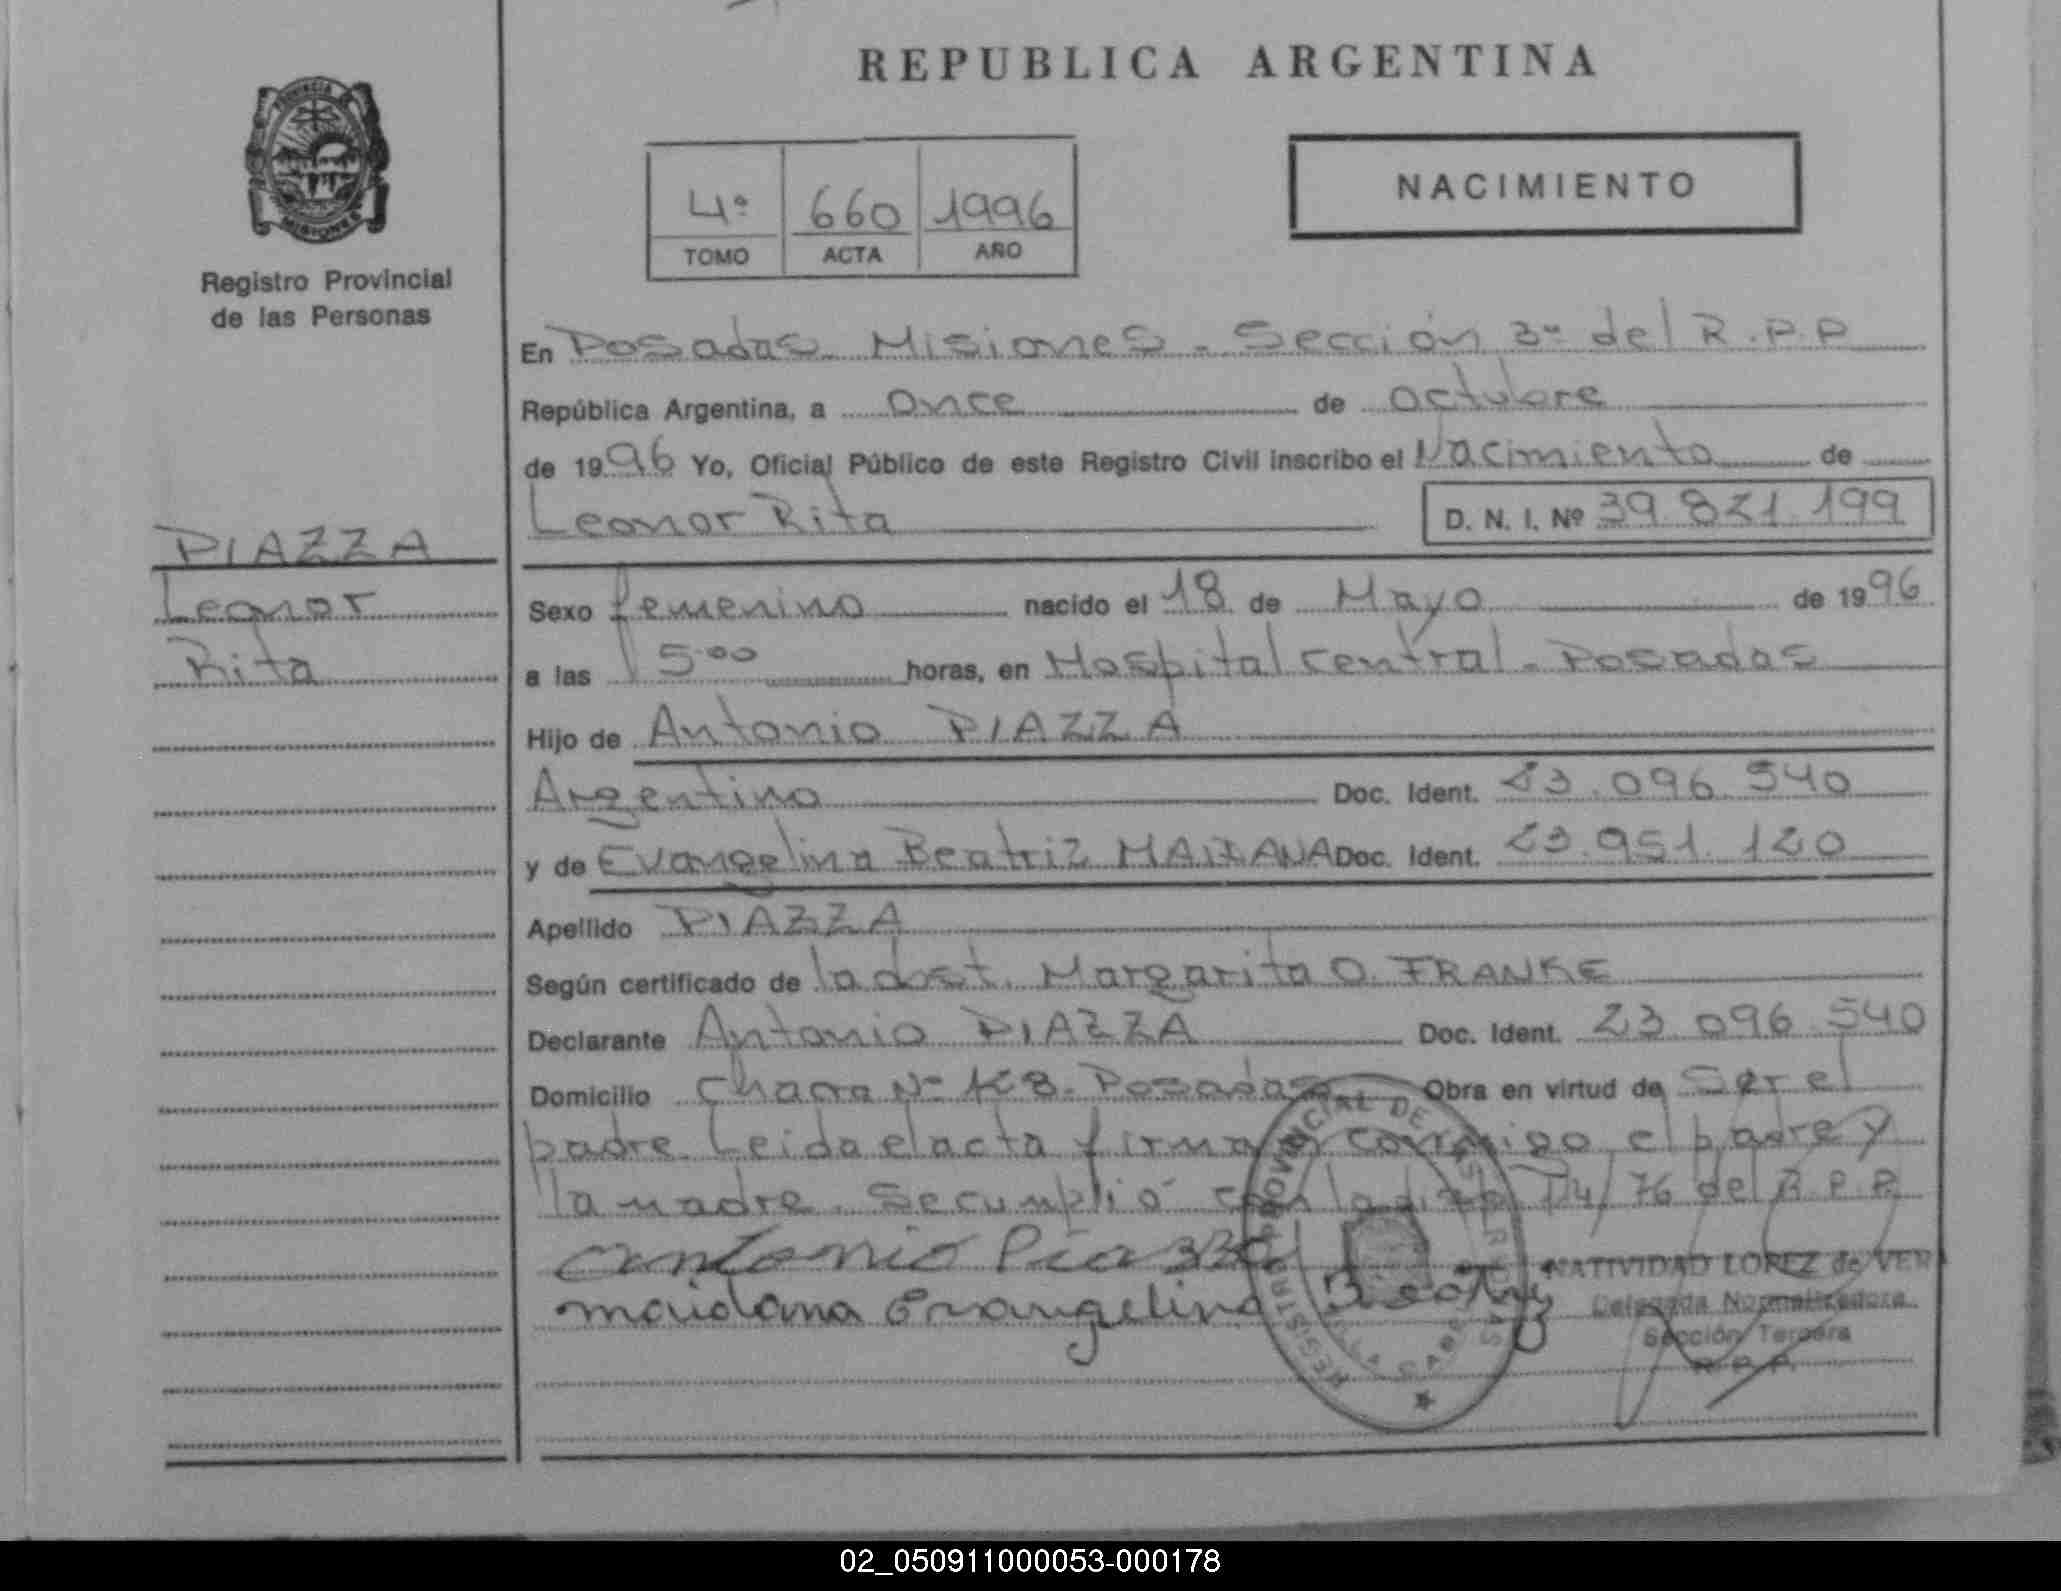 REPUBLICA ARGENTINA
PROVINCIA DE
MISIONES
Registro Provincial
de las Personas
4º 660 1996
TOMO ACTA AÑO
NACIMIENTO
En Posadas Misiones - Sección 3ª del R.P.P
República Argentina, a once de octubre
de 1996 Yo, Oficial Público de este Registro Civil inscribo el Nacimiento de
Leonor Rita D. N. I. Nº 39.821.199
PIAZZA
Leonor
Rita
Sexo femenino nacido el 18 de Mayo de 1996
a las 5ºº horas, en Hospital Central - Posadas
Hijo de Antonio PIAZZA
Argentino Doc. Ident. 23.096.540
y de Evangelina Beatriz MAIDANA Doc. Ident. 23.951.120
Apellido PIAZZA
Según certificado de la obst. Margarita O. FRANKE
Declarante Antonio PIAZZA Doc. Ident. 23 096 540
Domicilio Chacra Nº Posadas Obra en virtud de Ser el
padre. Leida el acta firman conmigo el padre y
la madre. Se cumplió con la 14/76 del R.P.P.
Antonio Piazza
maidana Evangelina Beatriz
REGISTRO PROVINCIAL DE LAS PERSONAS
NATIVIDAD LOPEZ de VER
Delegada Normalizadora
Sección Tercera
R.P.P.
02_050911000053-000178